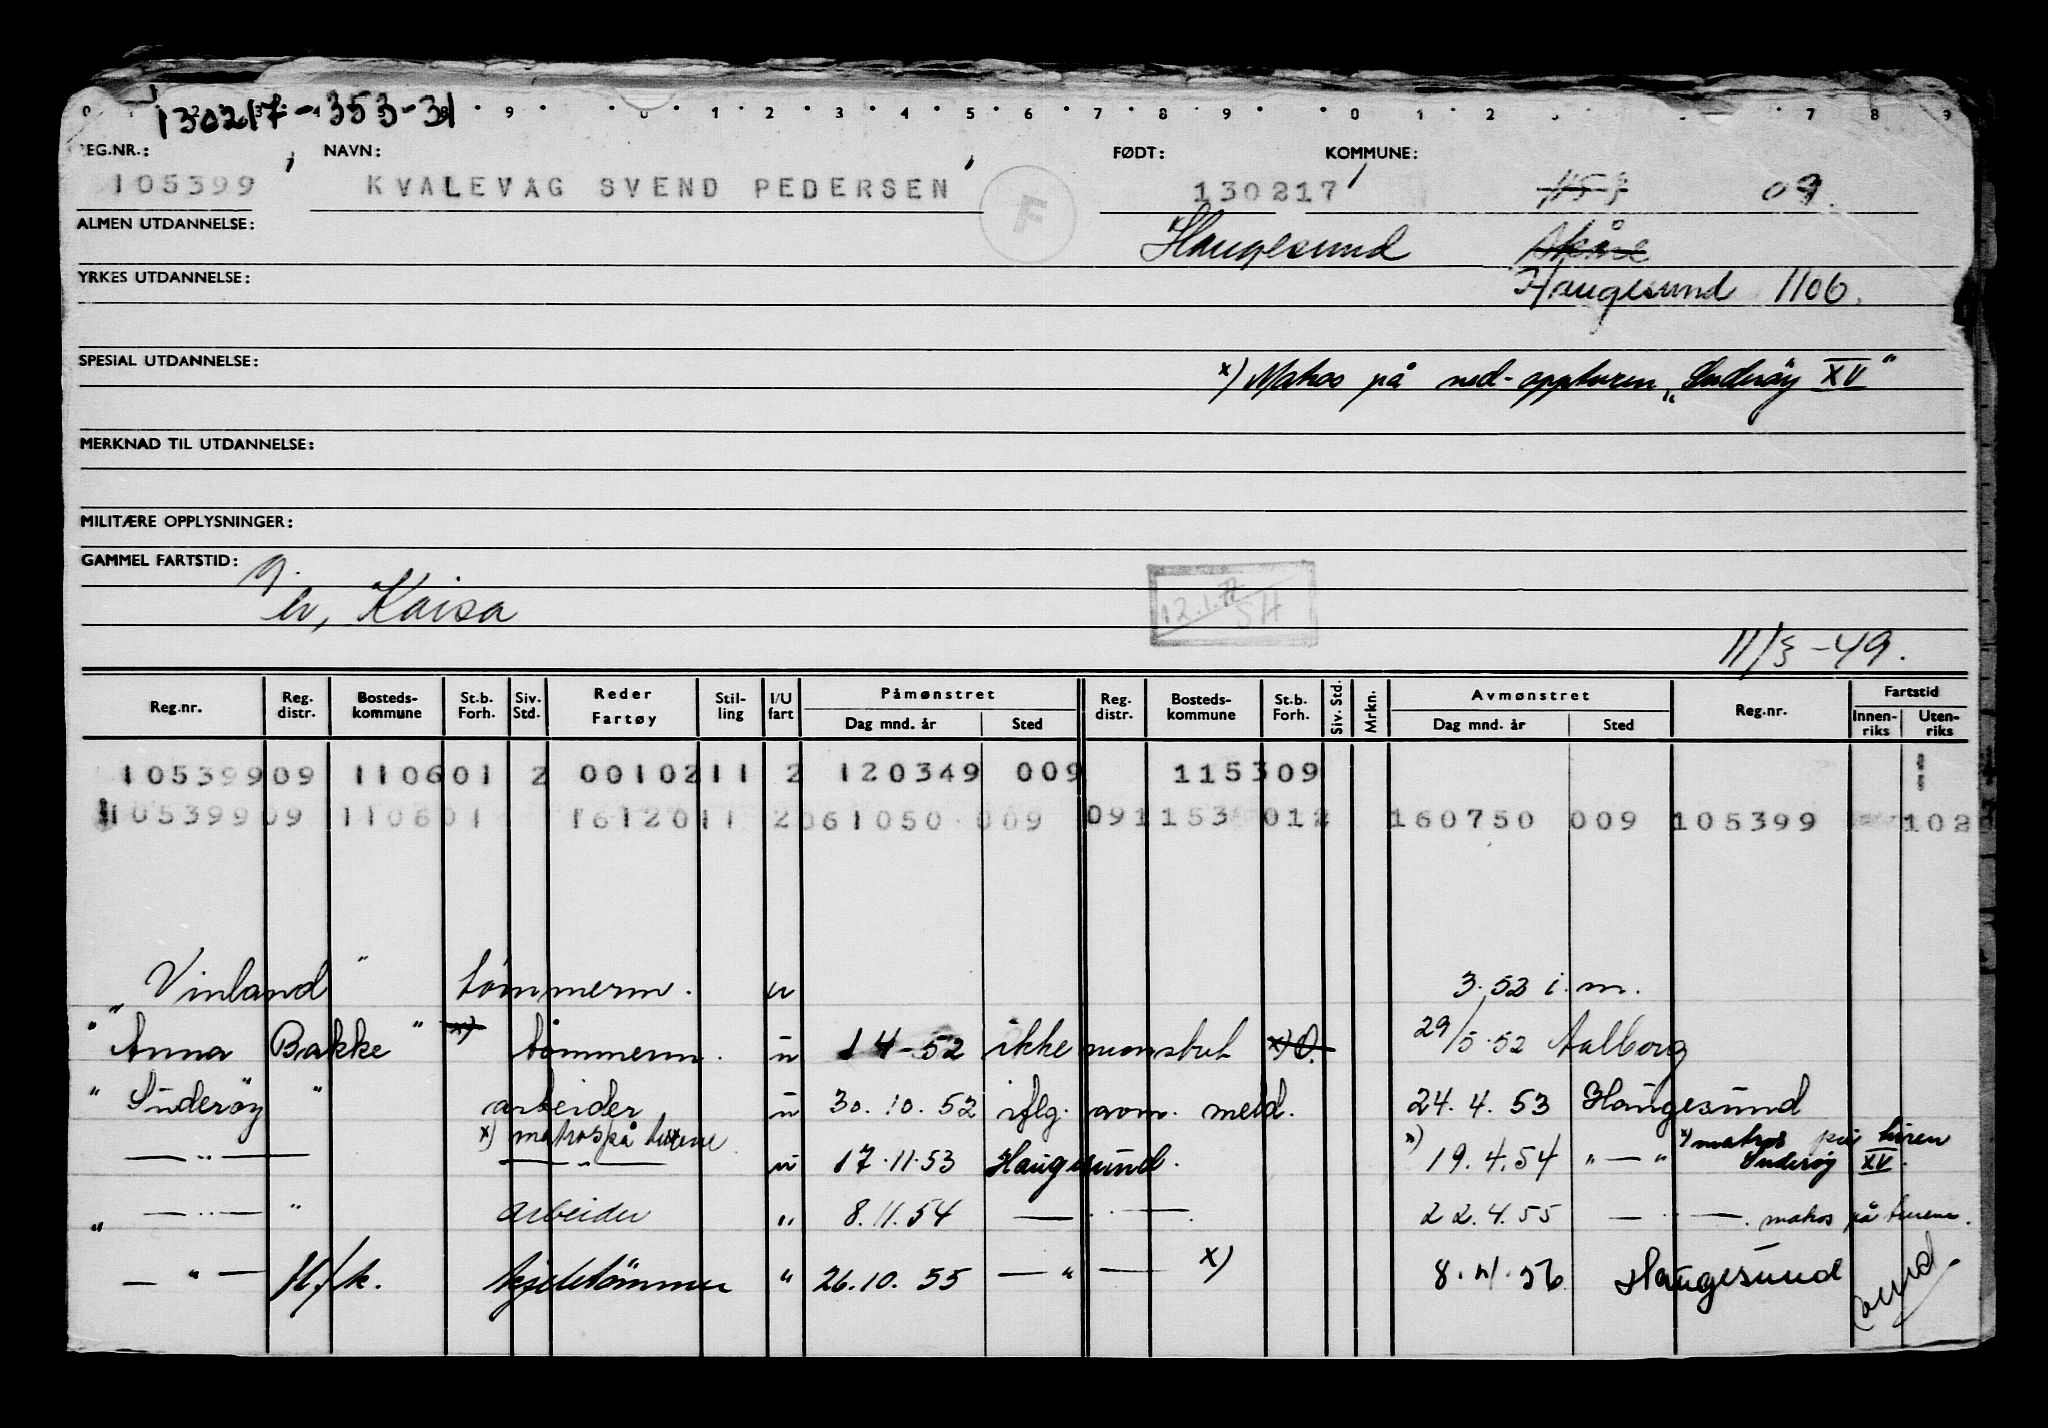 130217-353-31
9 0 1 2 3 4 5 6 7 8 9 0 1 2 7 8 9
REG.NR.: NAVN: FØDT: KOMMUNE:
105399 KVALEVAG SVEND PEDERSEN F 130217 09.
ALMEN UTDANNELSE: Haugesund Skåre
YRKES UTDANNELSE: Haugesund 1106.
SPESIAL UTDANNELSE: x) Matros på ned-oppturen „Suderöy XV"
MERKNAD TIL UTDANNELSE:
MILITÆRE OPPLYSNINGER:
GAMMEL FARTSTID:
Kaisa
12.1.77 SH
11/3-49.
Reg.nr. Reg. distr. Bosteds- kommune St.b. Forh. Siv. Std. Reder Fartøy Stil- ling I/U fart Påmønstret Dag mnd. år Sted Reg. distr. Bosteds- kommune St.b. Forh. Siv. Std. Mrkn. Avmønstret Dag mnd. år Sted Reg.nr. Fartstid Innen- riks Uten- riks
105399 09 1106 01 2 00102 11 2 120349 009 1153 09
105399 09 1106 01 16120 11 2 061050 009 09 1153 012 160750 009 105399 102
„Vinland" tømmerm. u 3.52 i.m.
"Anna Bakke" x) tømmerm. u 1 4-52 ikke mønstret x) O. 29/5.52 Aalborg
"Suderöy" arbeider u 30.10.52 iflg. avm. meld. 24.4.53 Haugesund
x) matros på turene
—"— —"— u 17.11.53 Haugesund. x) 19.4.54 "—" x) matros på turen Suderöy XV.
"—"—" arbeider " 8.11.54 —"—. 22.4.55 —"—. matros på turene.
—"— H/k. kjeletømmer " 26.10.55 —"— x) 8.4.56 Haugesund